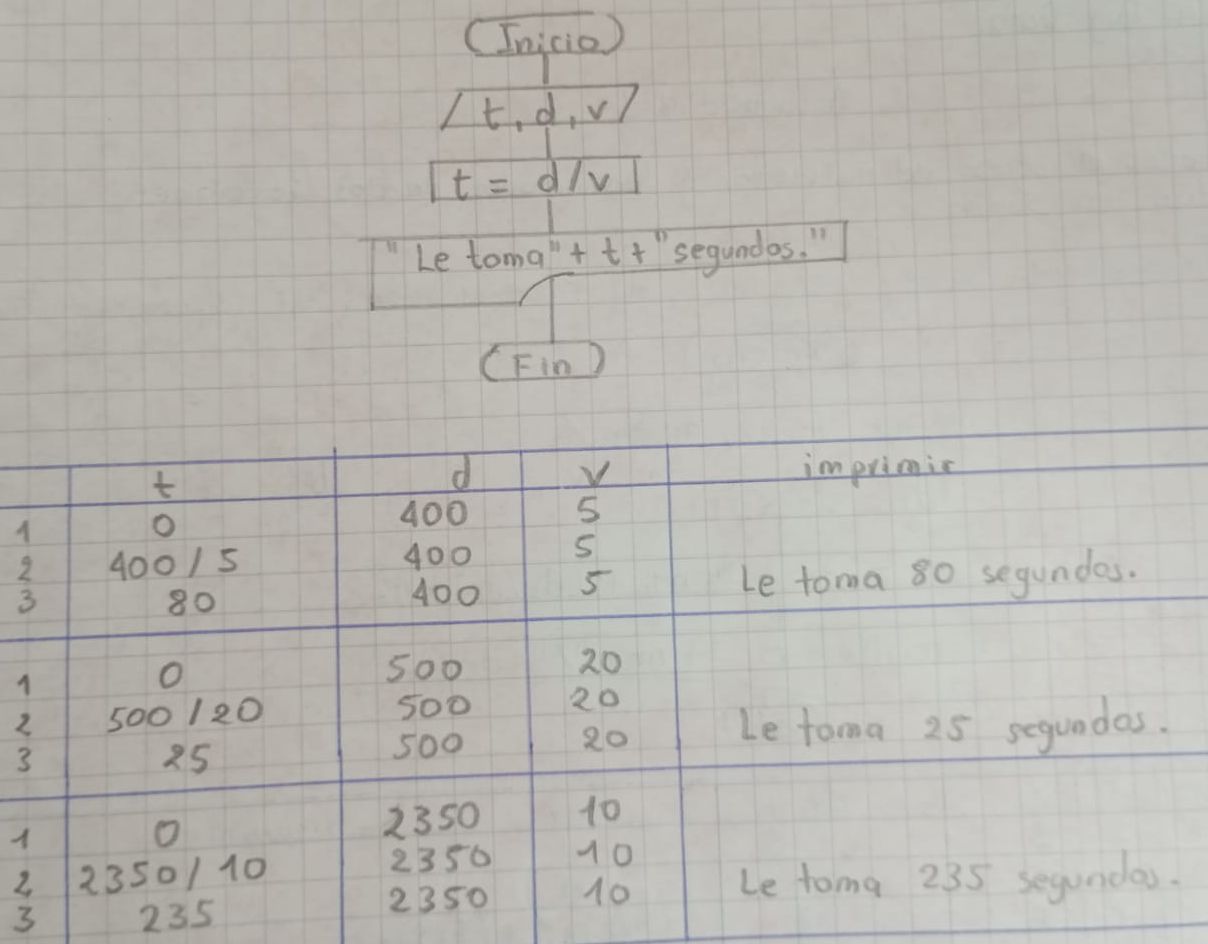 (Inicio)
/ t, d, v /
t = d/v
"Le toma" + t + "segundos."
(Fin)
t d v imprimir
1 0 400 5
2 400/5 400 5
3 80 400 5 Le toma 80 segundos.
1 0 500 20
2 500/20 500 20
3 25 500 20 Le toma 25 segundos.
1 0 2350 10
2 2350/10 2350 10
3 235 2350 10 Le toma 235 segundos.